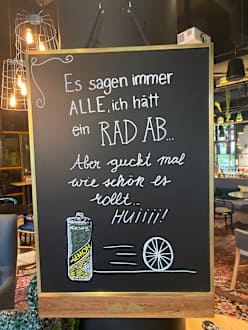 Es sagen immer
ALLE, ich hätt
ein RAD AB...
Aber guckt mal
wie schön es
rollt..
HUiiii!
LEMON